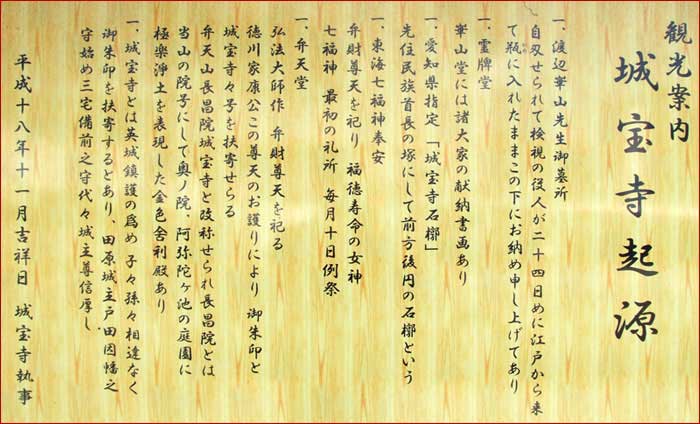 観光案内
城宝寺起源
一、渡辺崋山先生御墓所
自刃せられて検視の役人が二十四日めに江戸から来
て瓶に入れたままこの下にお納め申し上げてあり
一、霊牌堂
崋山堂には諸大家の献納書画あり
一、愛知県指定「城宝寺石槨」
先住民族首長の塚にして前方後円の石槨という
一、東海七福神奉安
弁財尊天を祀り 福徳寿命の女神
七福神 最初の礼所 毎月十日例祭
一、弁天堂
弘法大師作 弁財尊天を祀る
徳川家康公この尊天のお護りにより 御朱印と
城宝寺々号を扶寄せらる
弁天山長昌院城宝寺と改称せられ長昌院とは
当山の院号にして奥ノ院、阿弥陀ヶ池の庭園に
極楽浄土を表現した金色舎利殿あり
一、城宝寺とは英城鎮護の為め子々孫々相違なく
御朱印を扶寄するとあり、田原城主戸田因幡之
守始め三宅備前之守代々城主尊信厚し
平成十八年十一月吉祥日 城宝寺執事